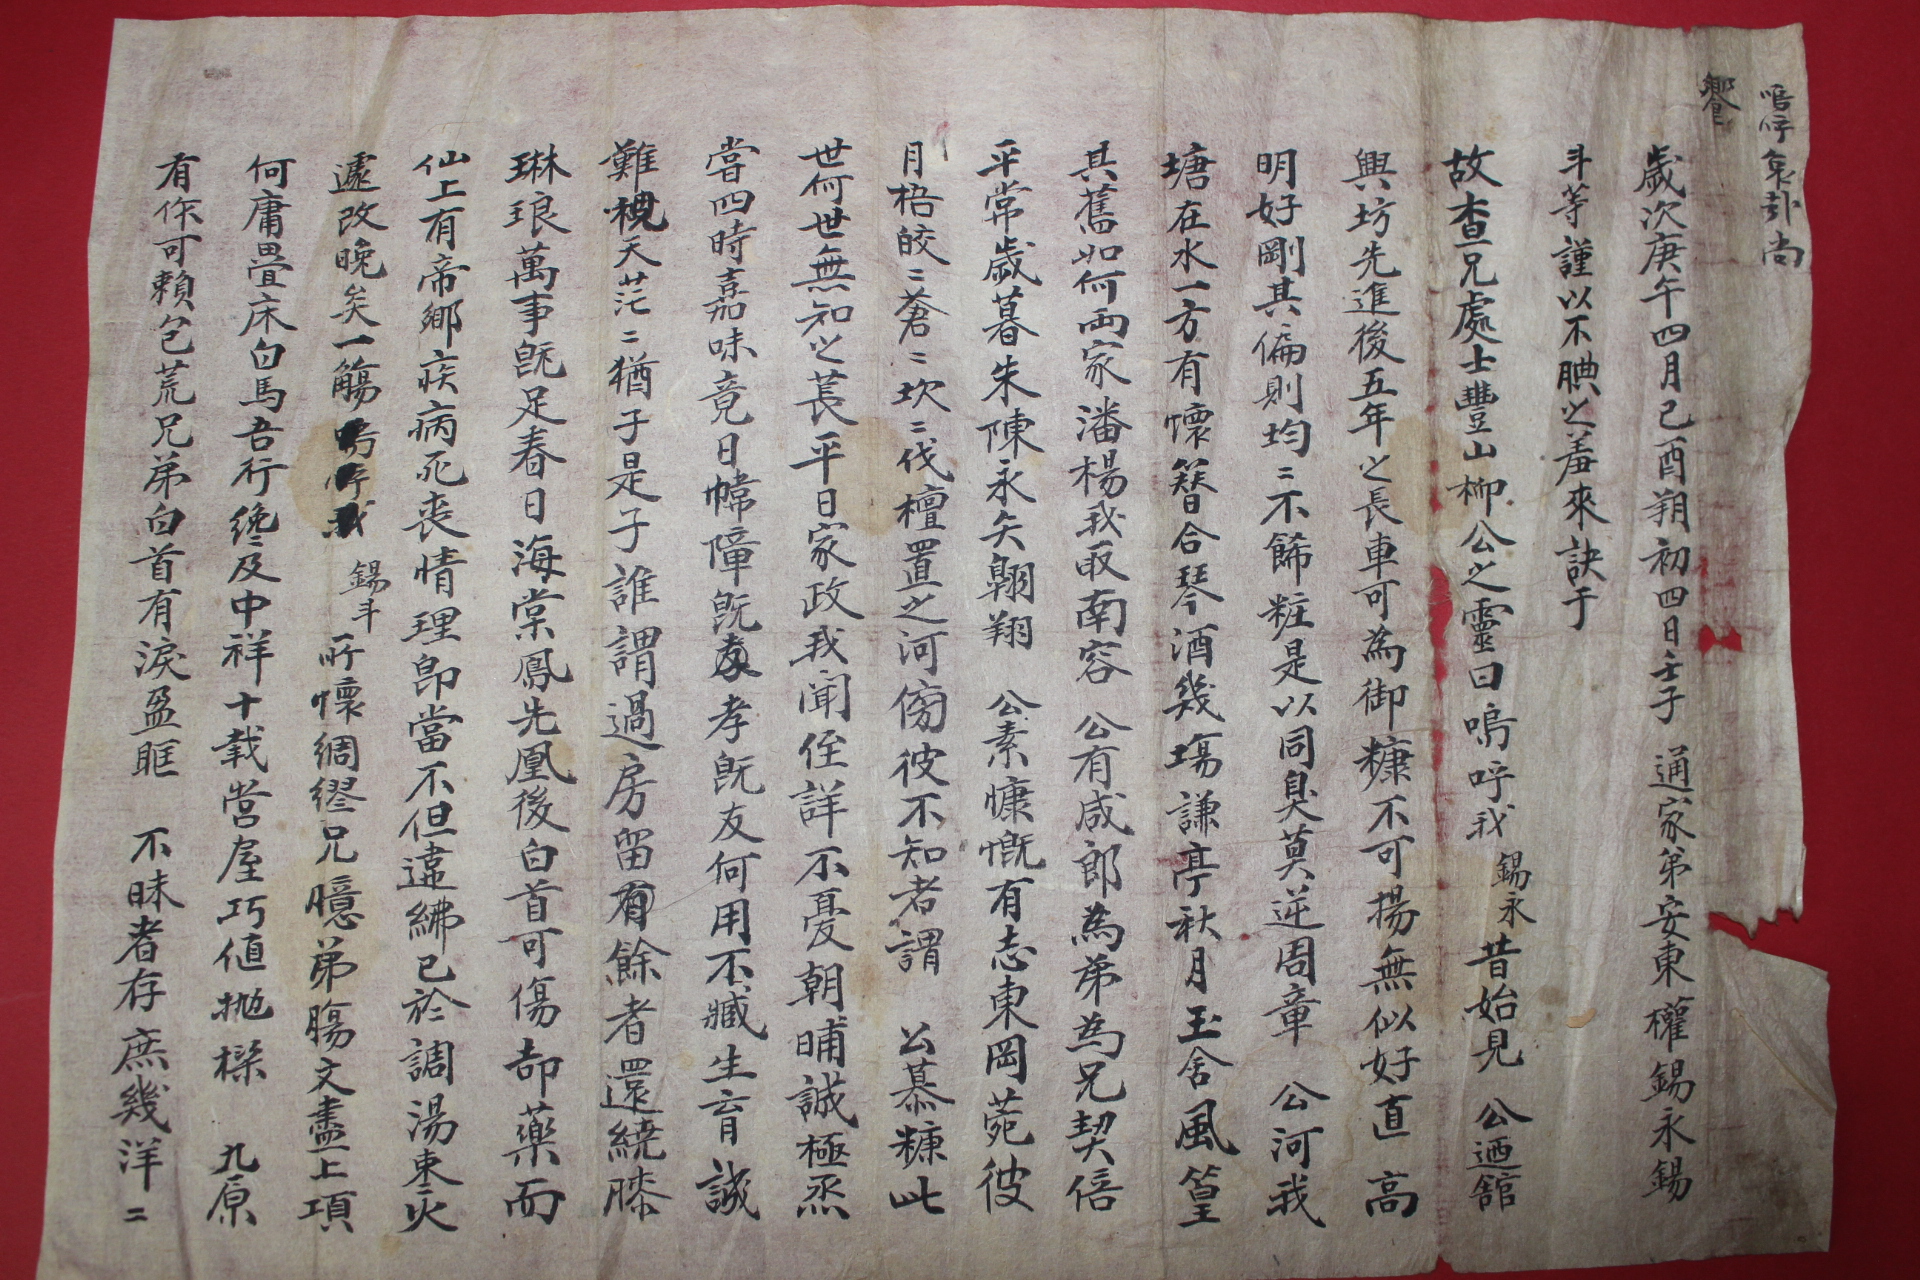 嗚呼哀哉尙
饗
歲次庚午四月己酉朔初四日壬子 通家弟安東權錫永錫
斗等謹以不腆之羞來訣于
故查兄處士豐山柳公之靈曰嗚呼我錫永昔始見 公迺舘
興坊先進後五年之長車可為御糠不可揚無似好直 高
明好剛其偏則均〻不餙粧是以同臭莫逆周章 公河我
塘在水一方有懷簪合琴酒幾塲謙亭秋月玉舍風篁
其舊如何兩家潘楊我取南容 公有咸郎為弟為兄契倍
平常歲暮朱陳永矢翺翔 公素慷慨有志東岡菀彼
月梧皎〻蒼〻坎〻伐檀置之河傍彼不知者謂 公慕糠此
世何世無知之萇平日家政我聞侄詳不憂朝晡誠極烝
嘗四時嘉味竟日幃障旣孝旣友何用不臧生育 誠
難視天茫〻猶子是子誰謂過房留有餘者還繞膝
琳琅萬事旣足春日海棠鳳先凰後白首可傷却藥而
仙上有帝鄉疾病死喪情理卽當不但違紼已於調湯東火
遽改晚矣一觴嗚呼我錫斗所懷綢繆兄臆弟膓文盡上項
何庸疊床白馬吾行纔及中祥十載営屋巧値抛樑 九原
有作可賴包荒兄弟白首有淚盈眶 不昧者存庶幾洋〻